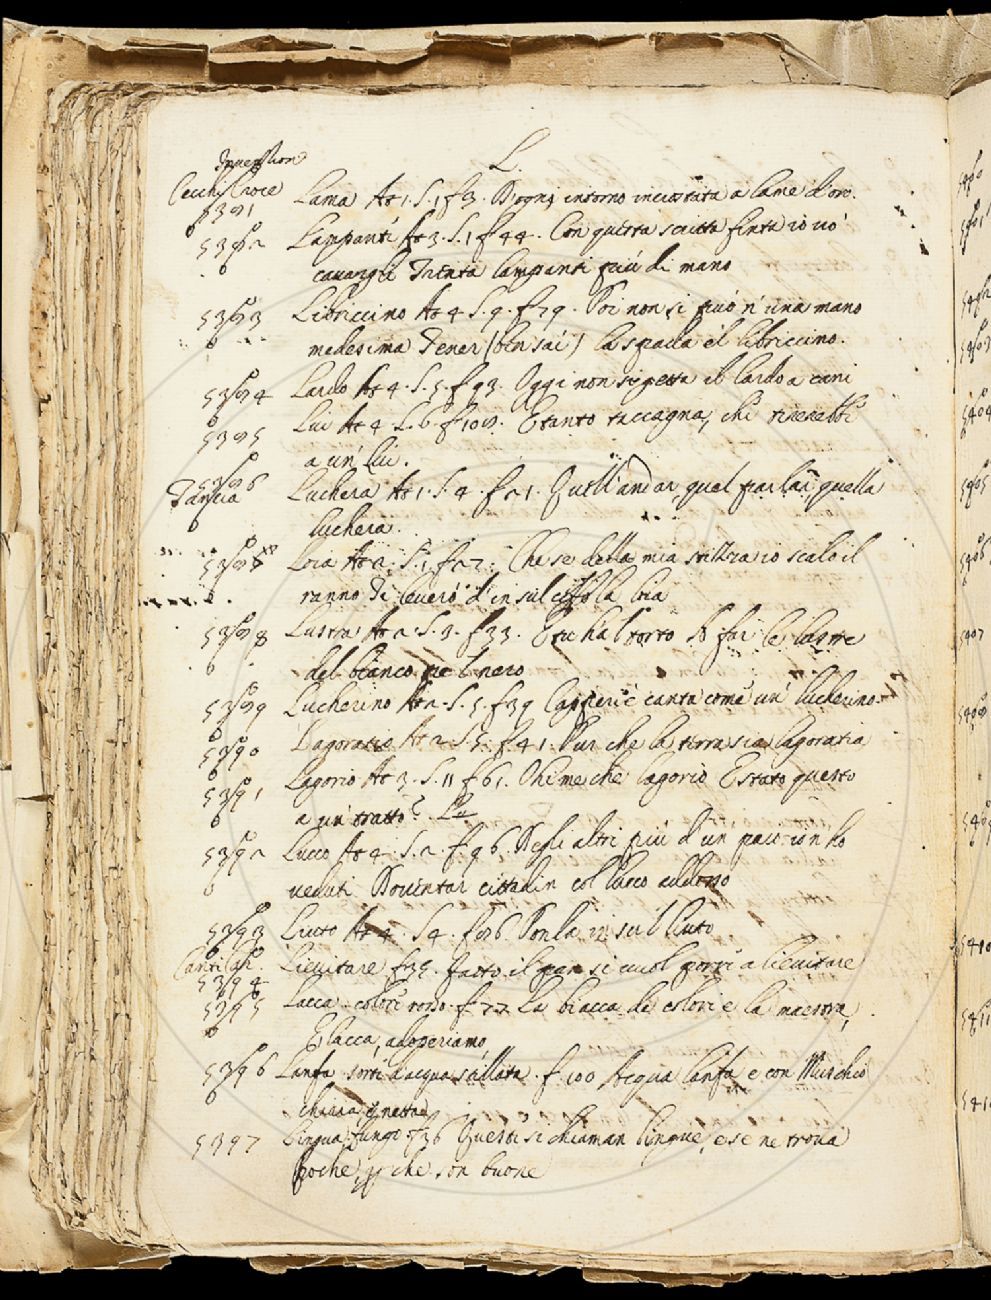 L.
Cecchi
Lama At 1. S. 1 f 3. D'ogni intorno incrostata a lame d'oro.
Lampanti At 3. S. 1 f 44. Con questa scritta finta io vò
cavargli Trenta lampanti più di mano
5383 Libriccino At 4 S. 9. f 79. Poi non si può n'una mano
medesima Tener (ben sai) la spada e'l libriccino.
5384 Lardo At 4. S. 5. f 93. Oggi non si getta il lardo a cani
5385 Lui At 4. S. 6. f 109. E tanto taccagna, che
a un Lui.
5386
Tancia
Luchera At 1. S. 4. f 21. Quell'andar, quel parlar, quella
luchera.
Loia At 2. S. 1 f 27. Che se della mia stizza io scalo il
ranno Ti leverò d'in sul ceffo la loia
5388 Lustra At 2. S. 3. f 33. E tu ha'l torto A far le lustre
del bianco pe'l nero
5389 Lucherino At 2. S. 5. f 39 Capperi e canta come un lucherino.
5390 Lagoratia At 2. S. 5. f 41. Pur che la terra sia lagoratia
5391 Lagorio At 3. S. 11 f 61. Ohime che lagorio È stato questo
a un tratto?
5392 Lucco At 4. S. 2. f 96. Degli altri più d'un paio io n'ho
veduti Doventar cittadin col lucco addosso
5393 Liuto At 4. S 4. f 86. Ponla in su'l liuto
5394 Lievitare f 35. Fatto il pan si vuol porre a lievitare
5395 Lacca - colore rosso. f 77 La biacca de colori è la maestra,
E lacca, adoperiamo
5396 Lanfa sorte d'acqua stillata. f 100 Acqua lanfa e con Muschio
chiara e netta
5397 Lingua, fungo f 36 Questi si chiaman lingue, e se ne trova
poche, p che son buone